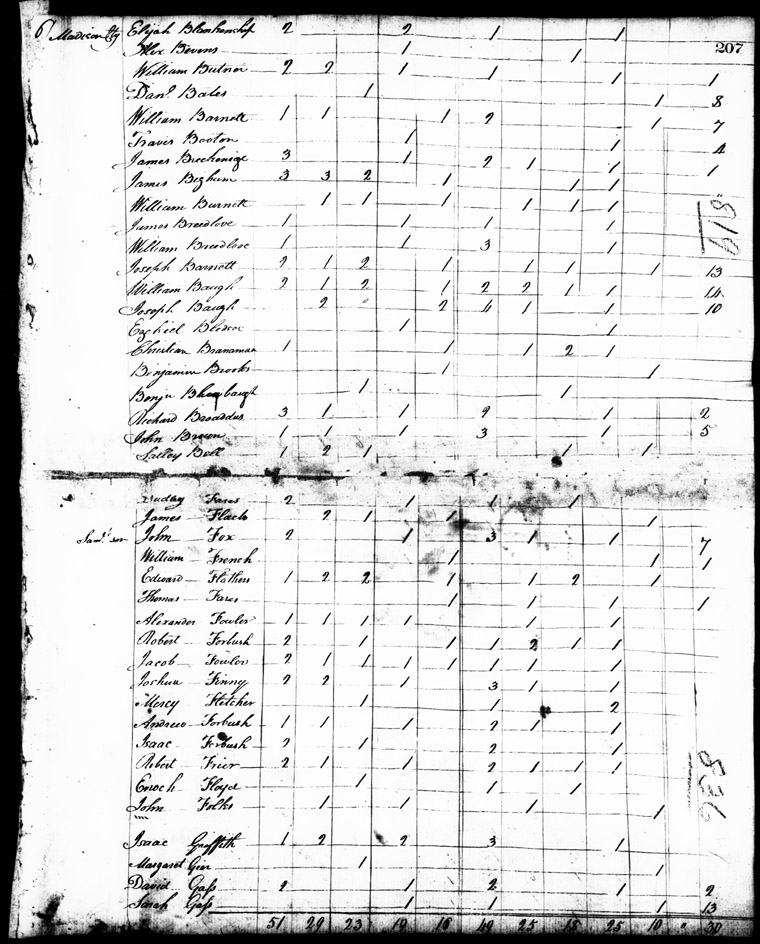 6 Madison Cty Elijah Blankenship 2 2 1 1
207
Alex Bivens 1 1
William Butner 2 2 1 1 1 1
Danl. Bales 1 1 8
William Barnett 1 1 1 2 1 7
Traves Booton 1 1 4
James Breckenige 3 1 2 1 1 1
James Begham 3 3 2 1 1 1
William Burnett 1 1 1 1 1 1
James Breedlove 1 1 1 1
William Breedlove 1 1 3 1
Joseph Barnett 2 1 2 1 1 1 1 13
William Baugh 2 1 2 1 2 2 1 1 14
Joseph Baugh 2 2 4 1 1 10
Ezekiel 1 1
Christian Branaman 1 1 1 2 1
Benjamin Brooks 1 1
Benja 1 1
Richard Broaddus 3 1 1 2 1 2
John Brown 1 1 1 3 1 5
Salley Bell 1 2 1 1 1
Dudley Fares 2 1 1 1
James 2 1 1 1
John Fox 2 1 3 1 1 7
William French 1 1 1
Edward Flathers 1 2 2 1 1 2 1
Thomas Fares 1 1 1 1
Alexander Fowler 1 1 1 1 1 1
Robert Forbush 2 1 1 1 2 1 1
Jacob Fowler 2 1 1 1 1 1 1 1
Joshua Finny 2 2 1 3 1 1
Mercy Fletcher 1 1 2
Andrew Forbush 1 1 1 2 1 1
Isaac Forbush 2 1 2 1
Robert Frier 2 1 1 2 1 1 1
Enoch Floyd 1 1 1
John Folks 1 1 1 1
Isaac Griffith 1 2 2 3 1
Margaret Geer 1 1
David Gass 2 1 2 1 2
Sarah Gass 1 1 1 13
51 29 23 19 16 49 25 15 25 10 " 30